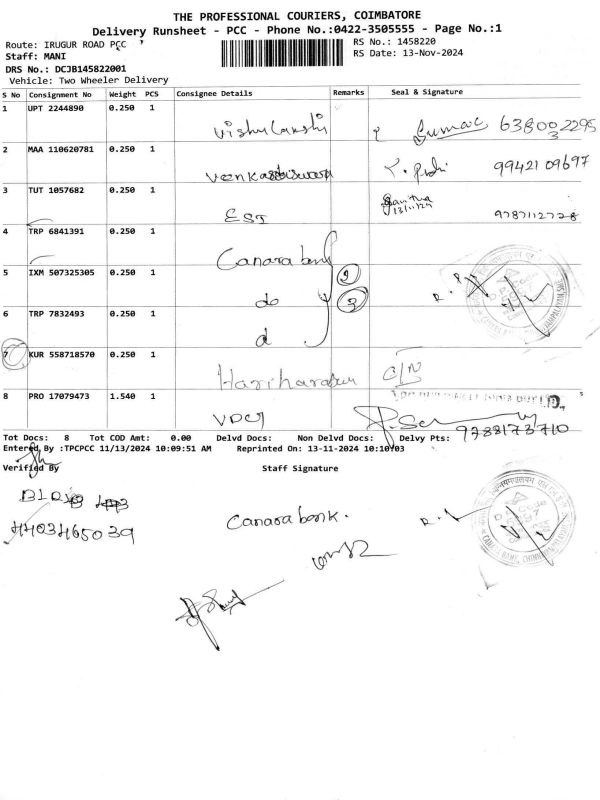 THE PROFESSIONAL COURIERS, COIMBATORE
Delivery Runsheet - PCC - Phone No.:0422-3505555 - Page No.:1
Route: IRUGUR ROAD PCC
RS No.: 1458220
Staff: MANI
RS Date: 13-Nov-2024
DRS No.: DCJB145822001
Vehicle: Two Wheeler Delivery
S No Consignment No Weight PCS Consignee Details Remarks Seal & Signature
1 UPT 2244890 0.250 1 Vishu Lakshi Kumar 6380032295
2 MAA 110620781 0.250 1 99421 09697
3 TUT 1057682 0.250 1 ESI 13/11/24 9787112728
4 TRP 6841391 Canara bank
5 IXM 507325305 0.250 1 do 2
3
6 TRP 7832493 0.250 1 d
7 KUR 558718570 0.250 1 Hariharasun
8 PRO 17079473 1.540 1 VDCJ 9788173710
Tot Docs: 8 Tot COD Amt: 0.00 Delvd Docs: Non Delvd Docs: Delvy Pts:
Entered By :TPCPCC 11/13/2024 10:09:51 AM Reprinted On: 13-11-2024 10:10:03
Verified By Staff Signature
Canara bank.
4403465039
CANARA BANK,